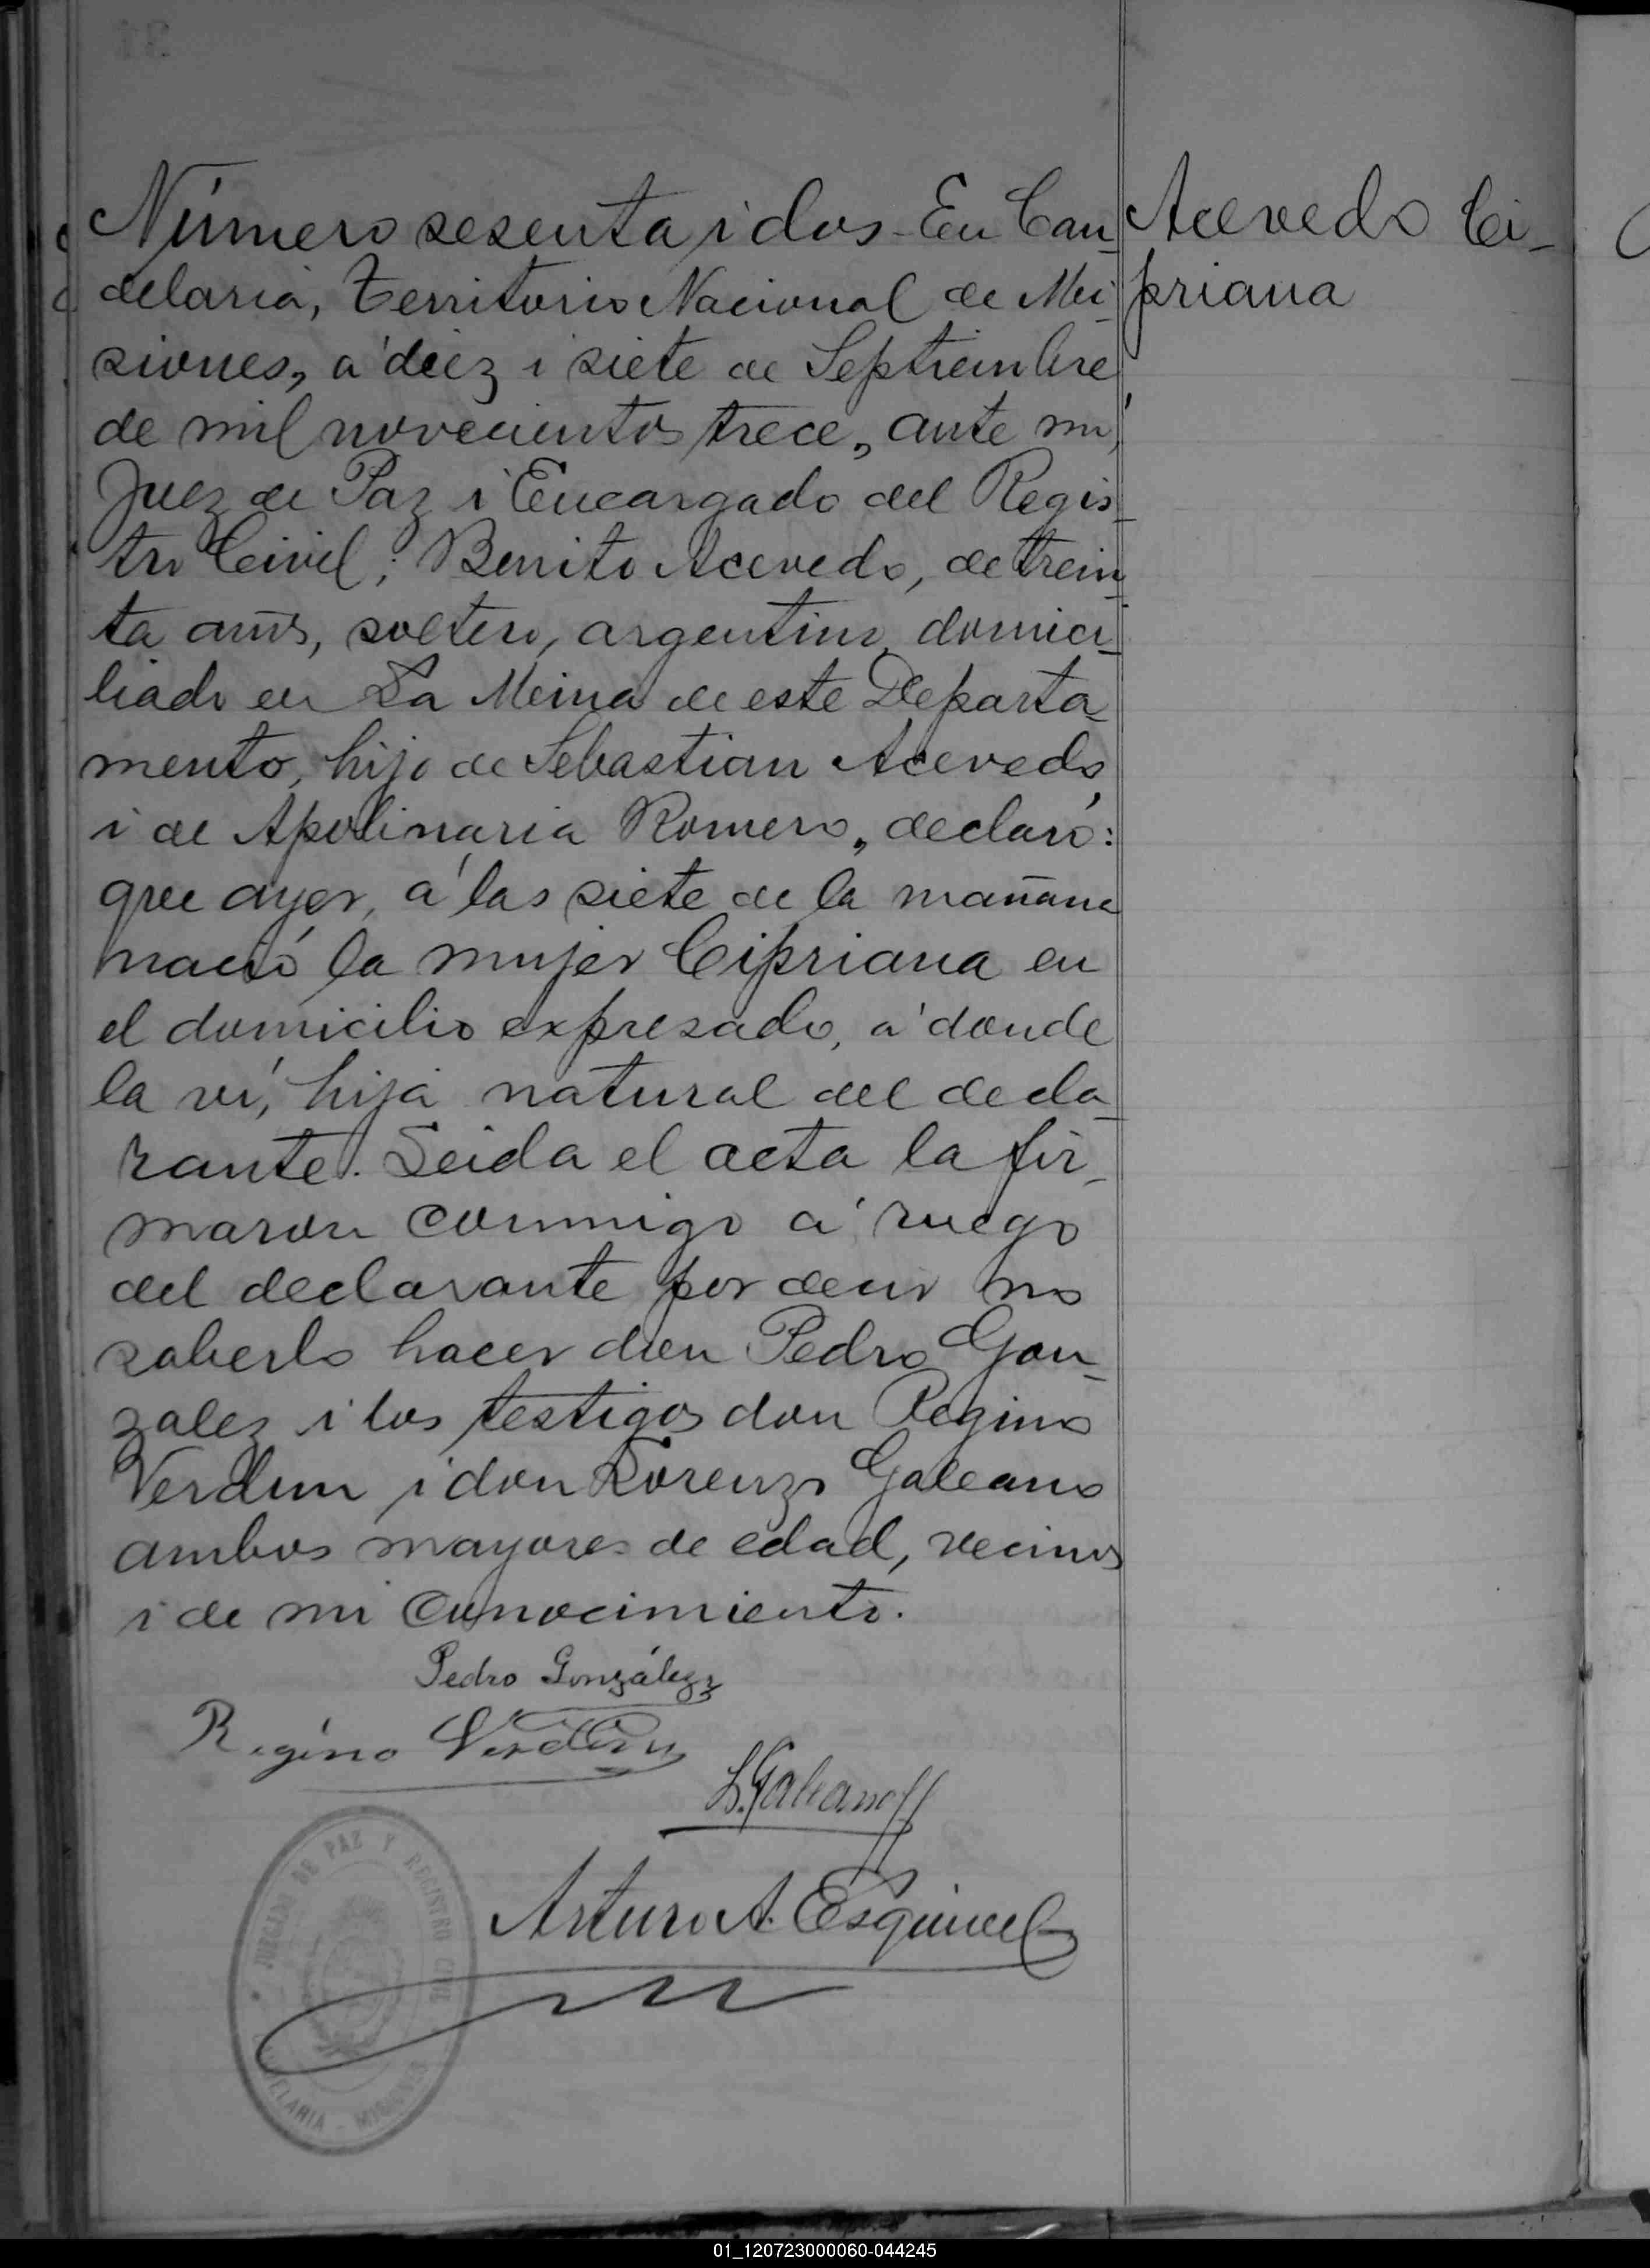 Número sesenta i dos - En Can-
delaria, Territorio Nacional de Mi-
siones, a' diez i siete de Septiembre
de mil novecientos trece, ante mí,
Juez de Paz i Encargado del Regis-
tro Civil; Benito Acevedo, de trein-
ta años, soltero, argentino, domici-
liado en La Mina de este Departa-
mento, hijo de Sebastian Acevedo,
i de Apolinaria Romero, declaró:
que ayer, á las siete de la mañana
nació la mujer Cipriana en
el domicilio expresado, a' donde
la ví, hija natural del decla-
rante. Leida el acta la fir-
maron conmigo a' ruego
del declarante por decir no
saberlo hacer don Pedro Gon-
zalez i los testigos don Regino
Verdun i don Lorenzo Galeano
ambos mayores de edad, vecinos
i de mi conocimiento.
Acevedo Ci-
priana
Pedro González
Regino Verdun
L. Galeano
Arturo A. Esquivel
JUZGADO DE PAZ Y REGISTRO CIVIL
CANDELARIA - MISIONES
01_120723000060-044245